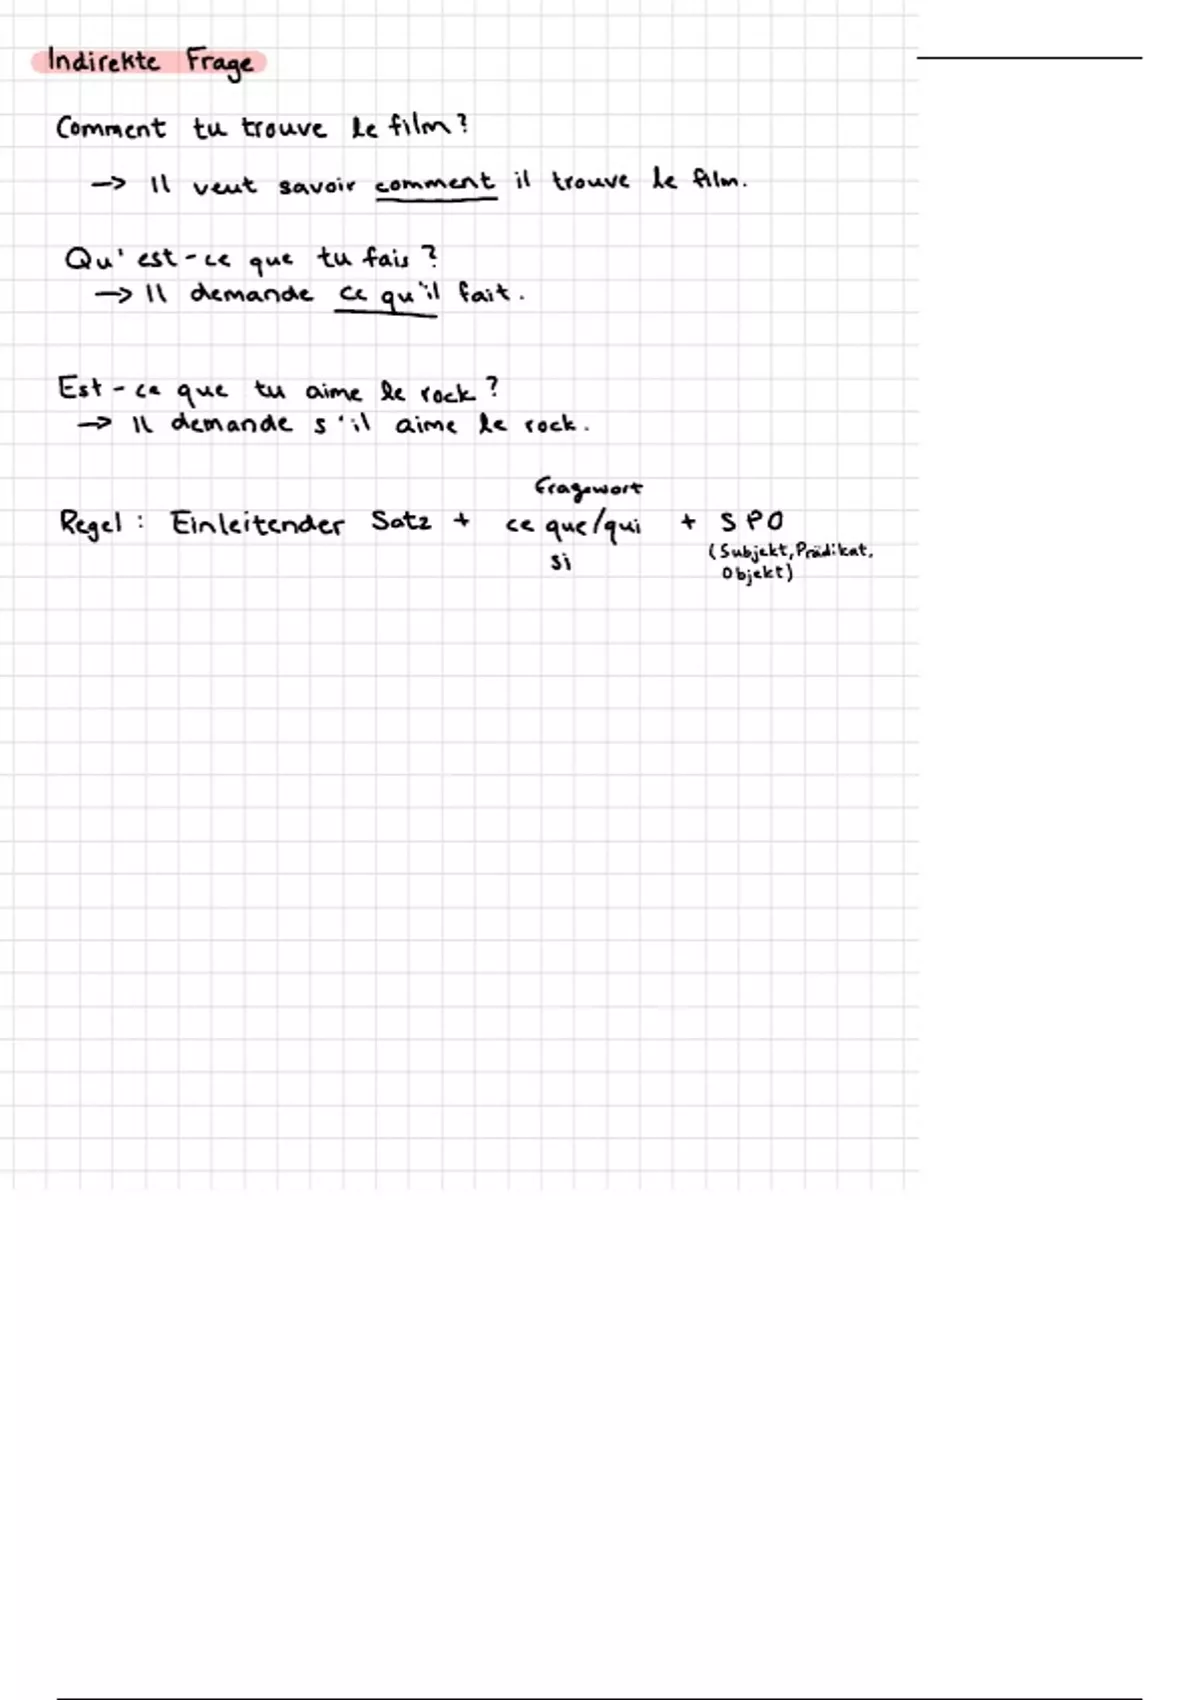 Indirekte Frage
Comment tu trouve le film?
→ Il veut savoir comment il trouve le film.
Qu'est-ce que tu fais?
→ Il demande ce qu'il fait.
Est-ce que tu aime le rock?
→ Il demande s'il aime le rock.
Fragewort
Regel: Einleitender Satz + ce que/qui + SPO
si (Subjekt, Prädikat,
Objekt)